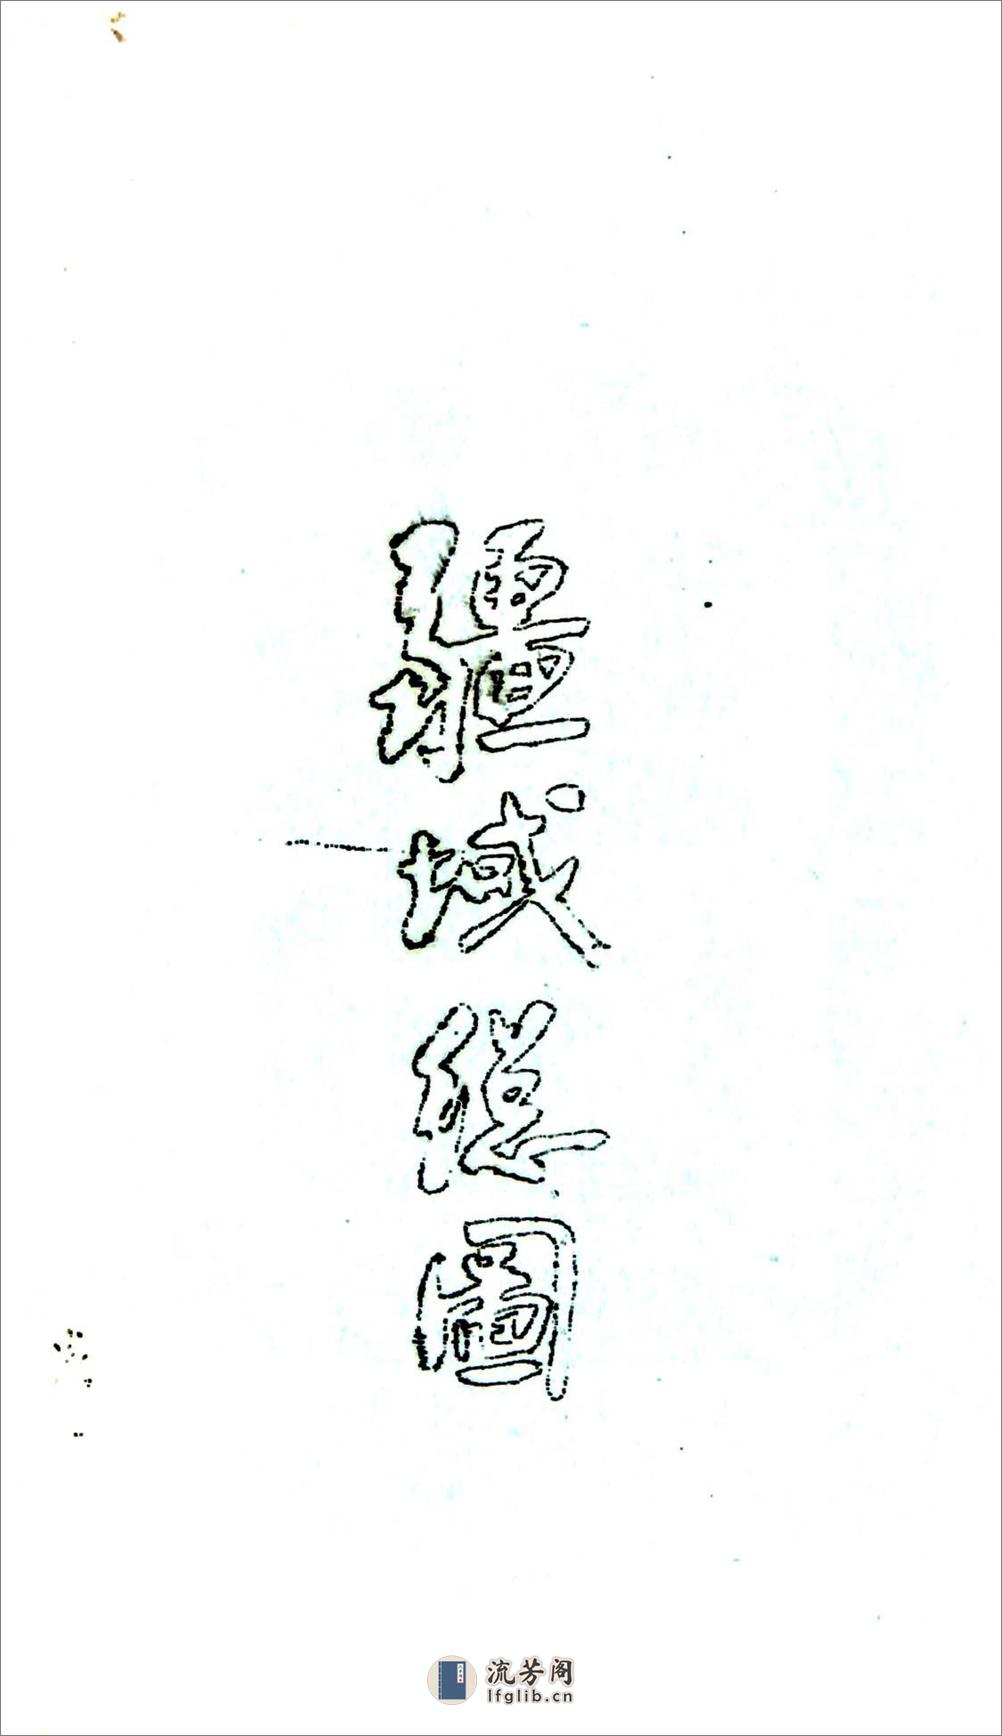 疆域總圖
流芳阁
lfglib.cn